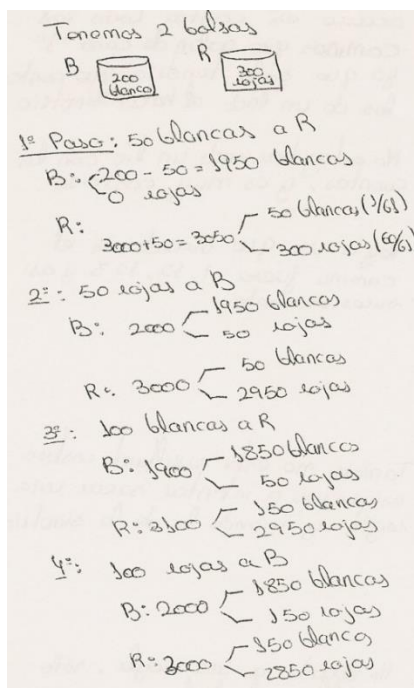 Tenemos 2 bolsas
B 200 blanca R 300 rojas
1º Paso: 50 blancas a R
B: 200 - 50 = 1950 blancas
0 rojas
R:
3000+50 = 3050 50 blancas (1/61)
300 rojas (60/61)
2º: 50 rojas a B
B: 2000 1950 blancas
50 rojas
R: 3000 50 blancas
2950 rojas
3º: 100 blancas a R
B: 1900 1850 blancas
50 rojas
R: 3100 150 blancas
2950 rojas
4º: 100 rojas a B
B: 2000 1850 blancas
150 rojas
R: 3000 150 blancas
2850 rojas